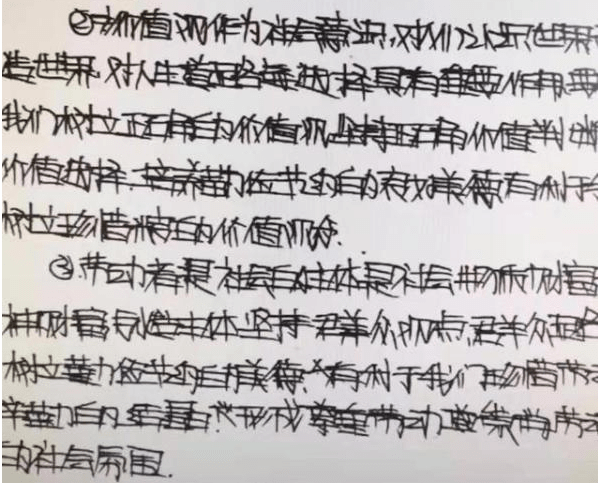 ②价值观作为社会意识,对人们认识世界
造世界,对人生道路的选择具有重要作用,要
我们树立正确的价值观,坚持正确的价值判断
价值选择.培养勤俭节约的良好美德有利于
树立珍惜粮食的价值观念.
③劳动者是社会的主体是社会物质财富
神财富创造主体,坚持群众观点,群众路
树立勤俭节约的美德,有利于我们珍惜劳动
辛勤的结晶,形成尊重劳动
的社会氛围.